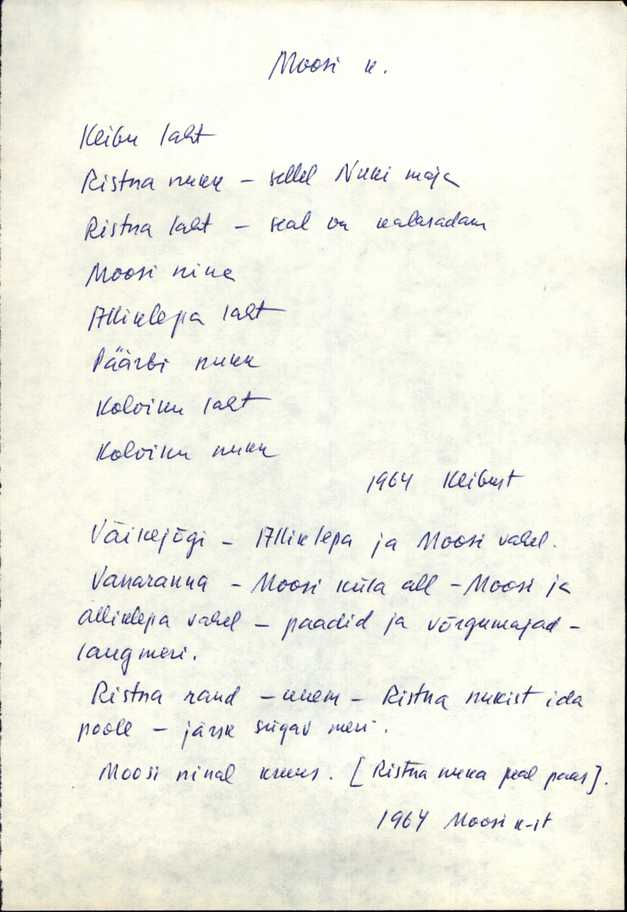 Moosi k.
Keibu laht
Ristna nukk – sellel Nuki maja
Ristna laht – seal on kalasadam
Moosi nina
Alliklepa laht
Päärbi nukk
Kolviku laht
Kolviku nukk
1964 Keibust
Väikejõgi – Alliklepa ja Moosi vahel.
Vanaranna – Moosi küla all – Moosi ja
Alliklepa vahel – paadid ja võrgumajad –
laugmeri.
Ristna rand – – Ristna nukist ida
poole – järsk sügav meri.
Moosi ninal kruus. [Ristna nuka peal paas].
1964 Moosi k-st